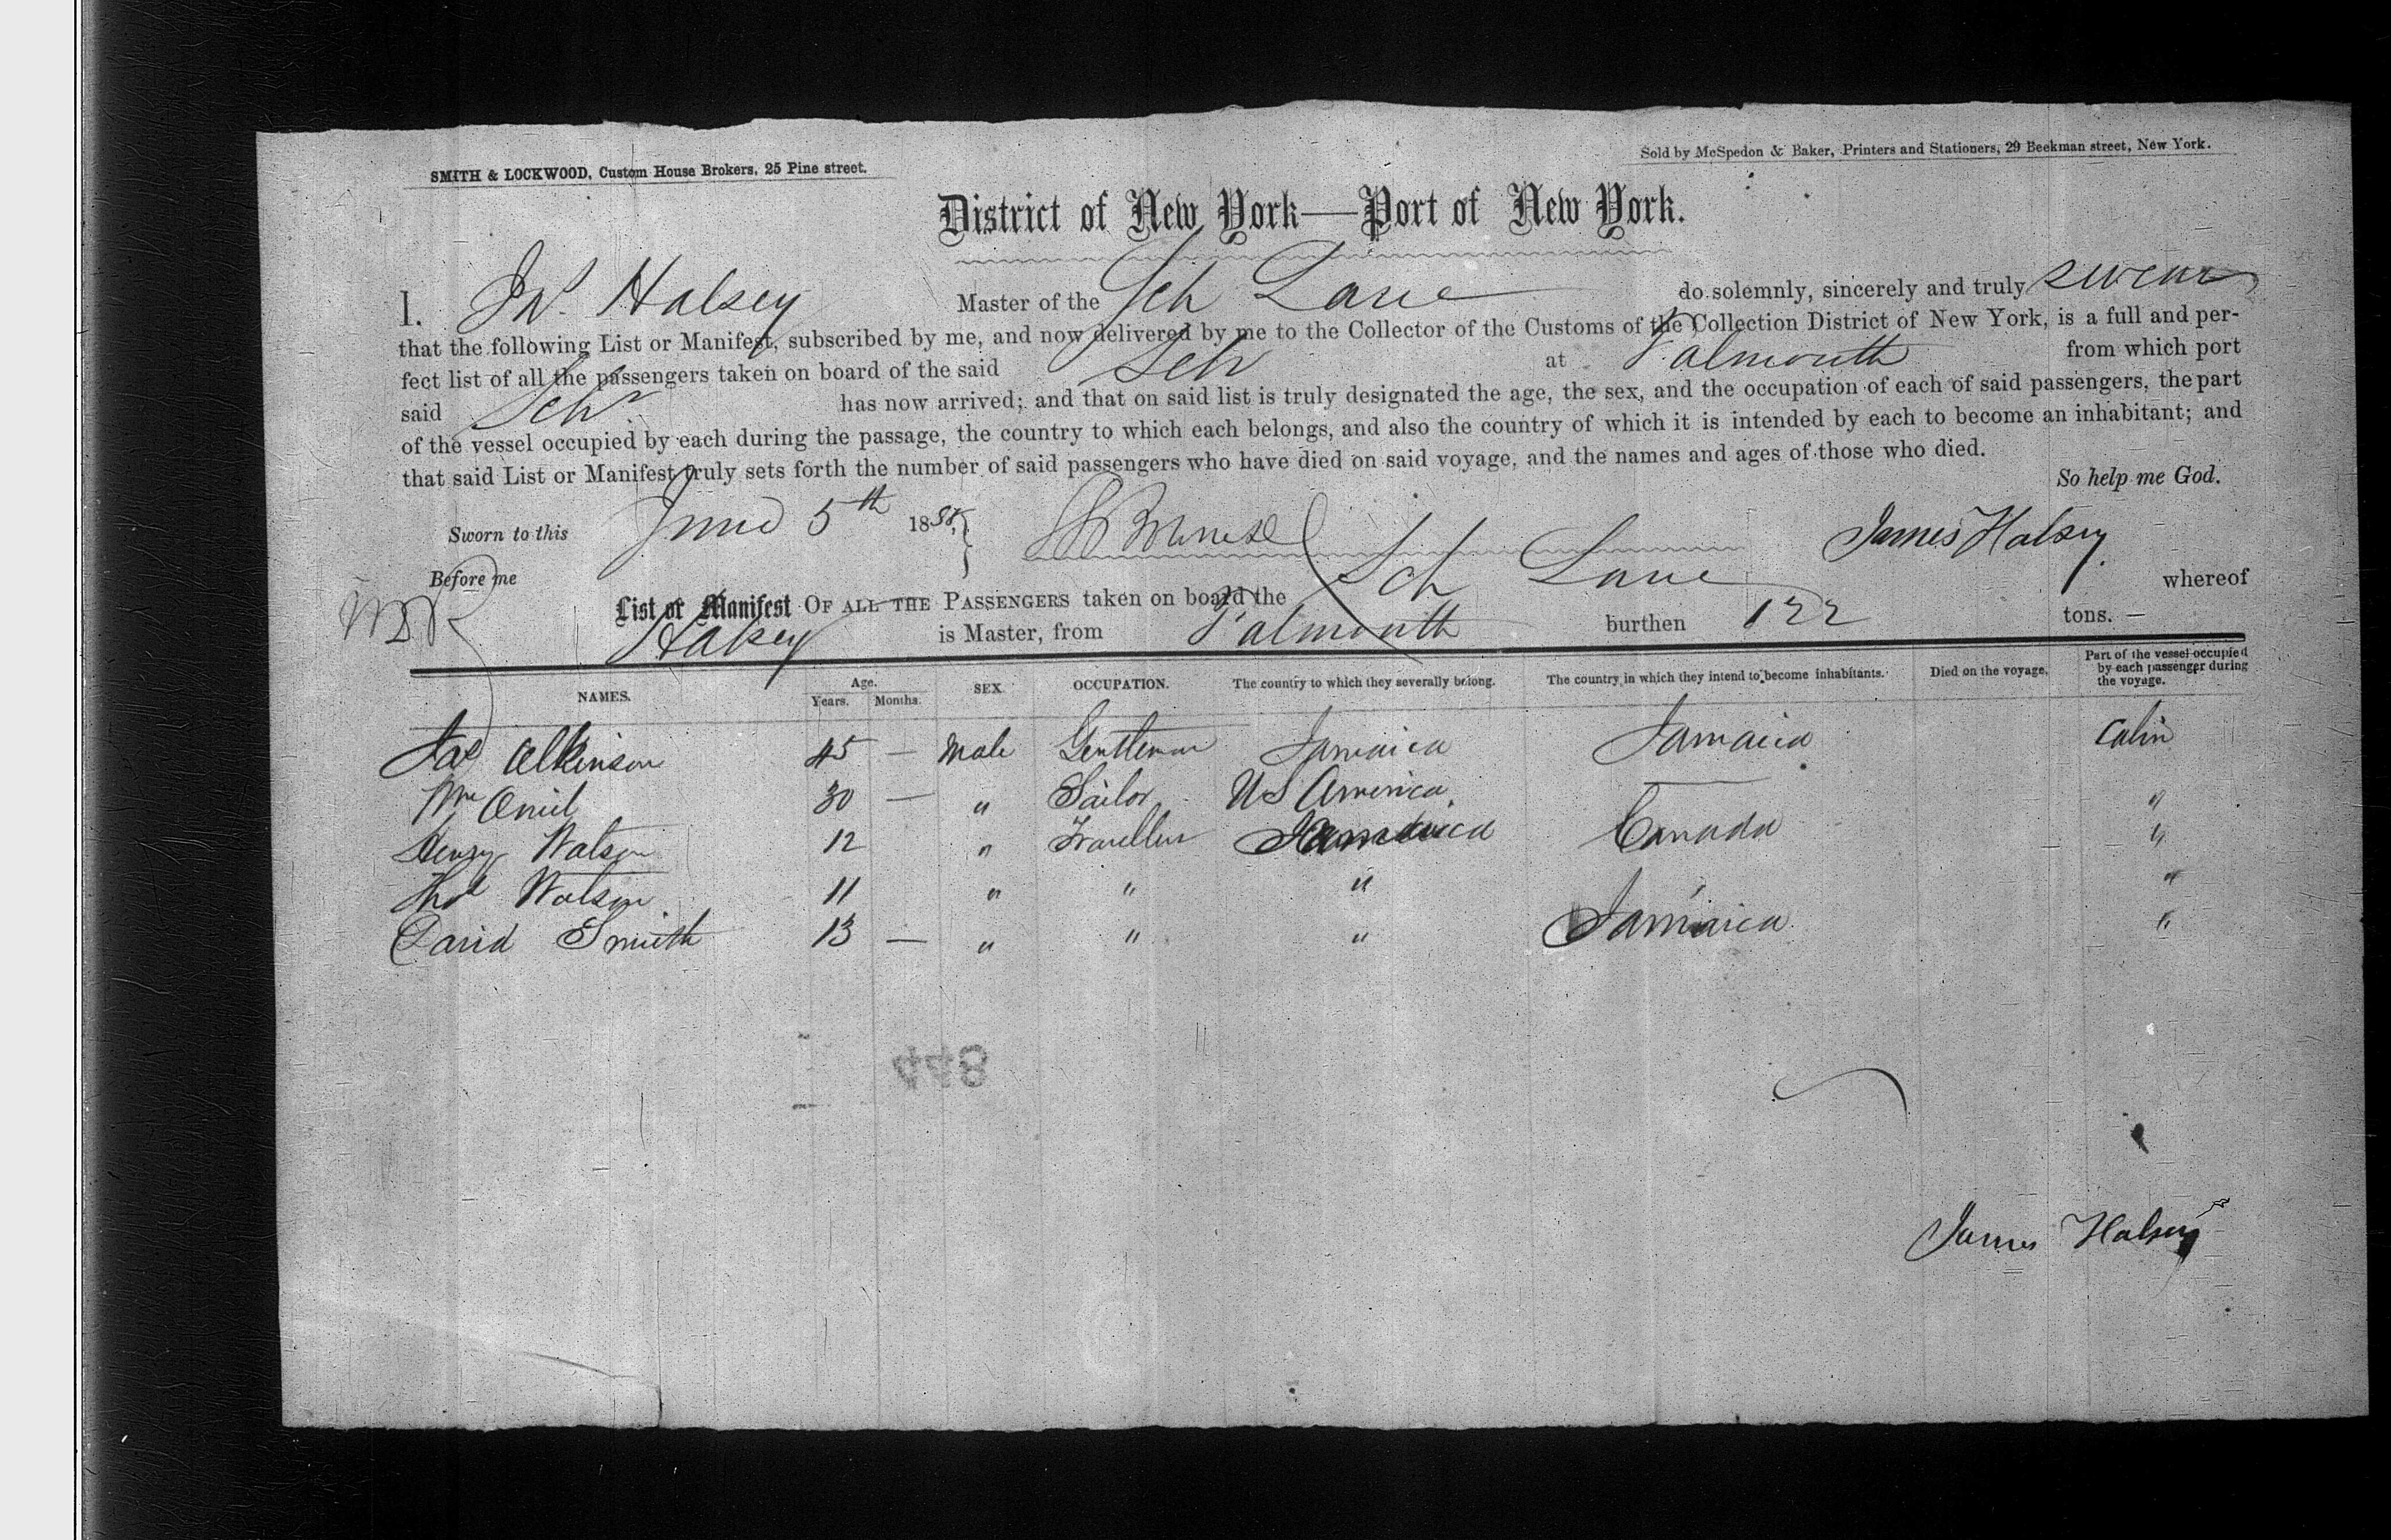 SMITH & LOCKWOOD, Custom House Brokers, 25 Pine street.
Sold by McSpedon & Baker, Printers and Stationers, 29 Beekman street, New York.
District of New York—Port of New York.
I. Jas. Halsey Master of the Sch Lane do solemnly, sincerely and truly swear
that the following List or Manifest, subscribed by me, and now delivered by me to the Collector of the Customs of the Collection District of New York, is a full and per-
fect list of all the passengers taken on board of the said Sch at Falmouth from which port
said Schr has now arrived; and that on said list is truly designated the age, the sex, and the occupation of each of said passengers, the part
of the vessel occupied by each during the passage, the country to which each belongs, and also the country of which it is intended by each to become an inhabitant; and
that said List or Manifest truly sets forth the number of said passengers who have died on said voyage, and the names and ages of those who died.
So help me God.
Sworn to this June 5th 18
James Halsey
Before me
List or Manifest OF ALL THE PASSENGERS taken on board the Sch Lane whereof
Halsey is Master, from Falmouth burthen 122 tons. —
NAMES. Age. Years. Months. SEX. OCCUPATION. The country to which they severally belong. The country in which they intend to become inhabitants. Died on the voyage. Part of the vessel occupied by each passenger during the voyage.
Jas Atkinson 45 — Male Gentleman Jamaica Jamaica Cabin
Wm Oniel 30 — " Sailor U S America — "
Henry Watson 12 " Traveller Jamaica Canada "
Thos Watson 11 " " " "
David Smith 13 — " " " Jamaica "
448
James Halsey